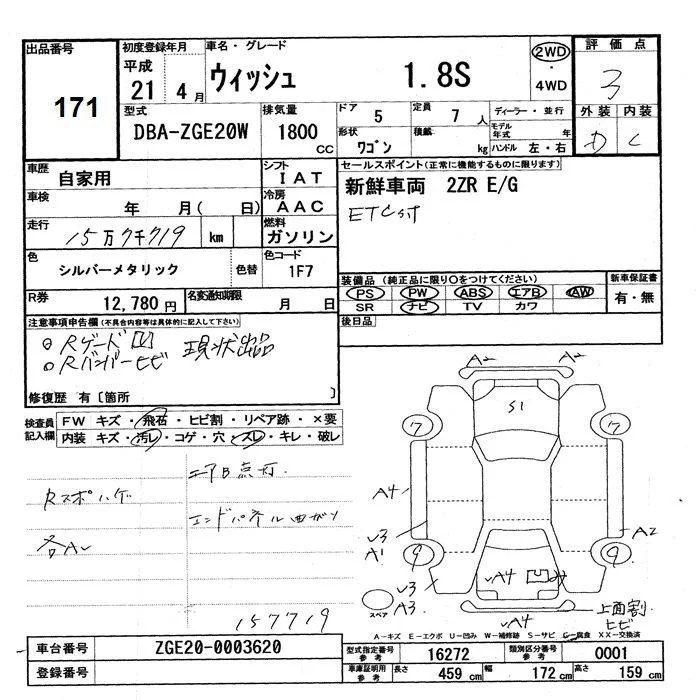 出品番号
171
初度登録年月
平成
21年 4月
車名・グレード
ウィッシュ 1.8S
2WD
・
4WD
評価点
3
外装 内装
D C
型式
DBA-ZGE20W
排気量
1800 CC
ドア 5
定員 7人
ディーラー・並行
形状 ワゴン
積載 kg
モデル年式 年
ハンドル 左・右
車歴
自家用
シフト
IAT
セールスポイント(正常に機能するものに限ります)
新鮮車両 2ZR E/G
ETC付
車検
年 月( 日)
冷房
AAC
走行
15万7千719 km
燃料
ガソリン
色
シルバーメタリック
色替
色コード
1F7
装備品(純正品に限り○をつけてください)
PS PW ABS エアB AW
SR ナビ TV カワ
新車保証書
有・無
R券
12,780円
名変通知期限
月 日
後日品
注意事項申告欄(不具合内容等は具体的に記入して下さい)
Rゲード凹
Rバンパーヒビ 現状出品
修復歴 有〔箇所 〕
検査員
記入欄
FW キズ・飛石・ヒビ割・リペア跡・×要
内装 キズ・汚レ・コゲ・穴・スレ・キレ・破レ
エアB点灯.
Rスポハゲ
エンドパネル曲ガリ
各A
157719
A2 A2
S1
17 17
A4
A2
A1
9 9
A4
A3
A4
上面割
ヒビ
スペア
A-キズ E-エクボ U-凹み W-補修跡 S-サビ C-腐食 XX-交換済
車台番号
ZGE20-0003620
登録番号
型式指定番号 参考
16272
類別区分番号 参考
0001
車庫証明用 参考
長さ 459 cm
幅 172 cm
高さ 159 cm